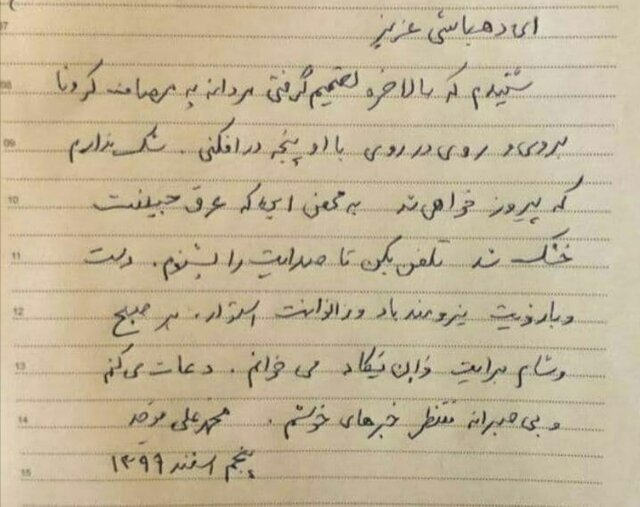 ای دهباشی عزیز
شنیدم که بالاخره تصمیم گرفتی مردانه به مصاف کرونا
بروی و روی در روی با او پنجه در افکنی. شک ندارم
که پیروز خواهی شد به محض این که عرق جبینت
خشک شد تلفن بکن تا صدایت را بشنوم. دلت
و بازویت نیرومند باد و زانوانت استوار. هر صبح
و شام برایت وان یکاد می خوانم. دعات می کنم
و بی صبرانه منتظر خبرهای خوشم. محمدعلی موحد
پنجم اسفند ۱۳۹۹
07
08
09
10
11
12
13
14
15